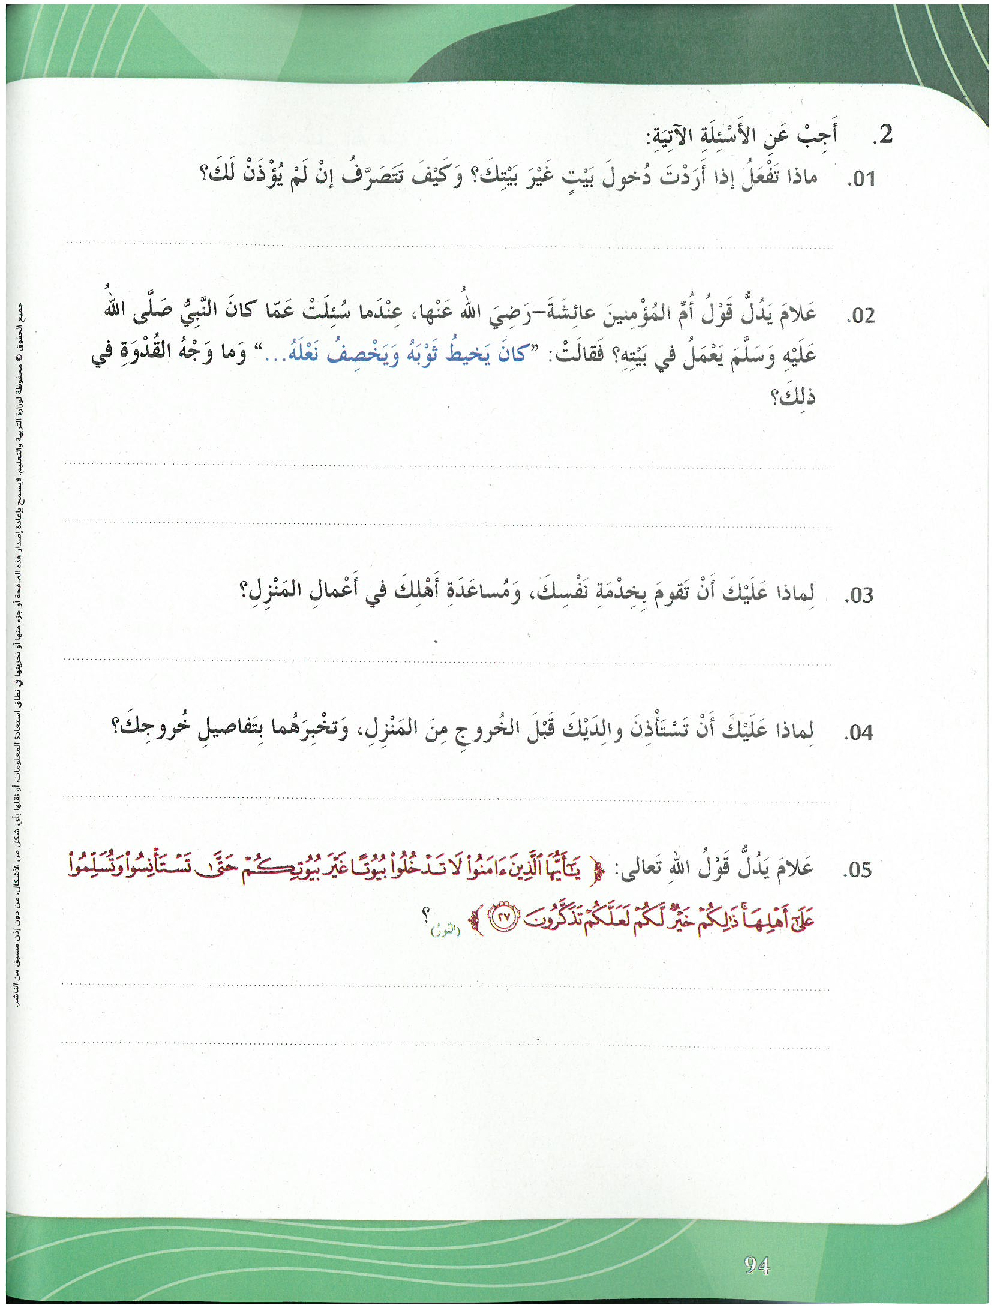 2. أَجِبْ عَنِ الأَسْئِلَةِ الآتِيَةِ:
01. ماذا تَفْعَلُ إذا أَرَدْتَ دُخولَ بَيْتٍ غَيْرَ بَيْتِكَ؟ وَكَيْفَ تَتَصَرَّفُ إنْ لَمْ يُؤْذَنْ لَكَ؟
02. عَلامَ يَدُلُّ قَوْلُ أُمِّ المُؤْمِنينَ عائِشَةَ–رَضِيَ اللهُ عَنْها، عِنْدَما سُئِلَتْ عَمّا كانَ النَّبِيُّ صَلَّى اللهُ
عَلَيْهِ وَسَلَّمَ يَعْمَلُ في بَيْتِهِ؟ فَقالَتْ: "كانَ يَخيطُ ثَوْبَهُ وَيَخْصِفُ نَعْلَهُ..." وَما وَجْهُ القُدْوَةِ في
ذلِكَ؟
03. لِماذا عَلَيْكَ أَنْ تَقومَ بِخِدْمَةِ نَفْسِكَ، وَمُساعَدَةِ أَهْلِكَ في أَعْمالِ المَنْزِلِ؟
04. لِماذا عَلَيْكَ أَنْ تَسْتَأْذِنَ والِدَيْكَ قَبْلَ الخُروجِ مِنَ المَنْزِلِ، وَتخْبِرَهُما بِتَفاصيلِ خُروجِكَ؟
05. عَلامَ يَدُلُّ قَوْلُ اللهِ تَعالى: ﴿ يَٰٓأَيُّهَا ٱلَّذِينَ ءَامَنُوا۟ لَا تَدْخُلُوا۟ بُيُوتًا غَيْرَ بُيُوتِكُمْ حَتَّىٰ تَسْتَأْنِسُوا۟ وَتُسَلِّمُوا۟
عَلَىٰٓ أَهْلِهَا ۚ ذَٰلِكُمْ خَيْرٌ لَّكُمْ لَعَلَّكُمْ تَذَكَّرُونَ ٢٧ ﴾ (النّور)؟
جميع الحقوق © محفوظة لوزارة التربية والتعليم. لا يسمح بإعادة إصدار هذه الصفحة أو جزء منها أو تخزينها في نطاق استعادة المعلومات، أو نقلها بأي شكل من الأشكال، من دون إذن مسبق من الناشر.
94